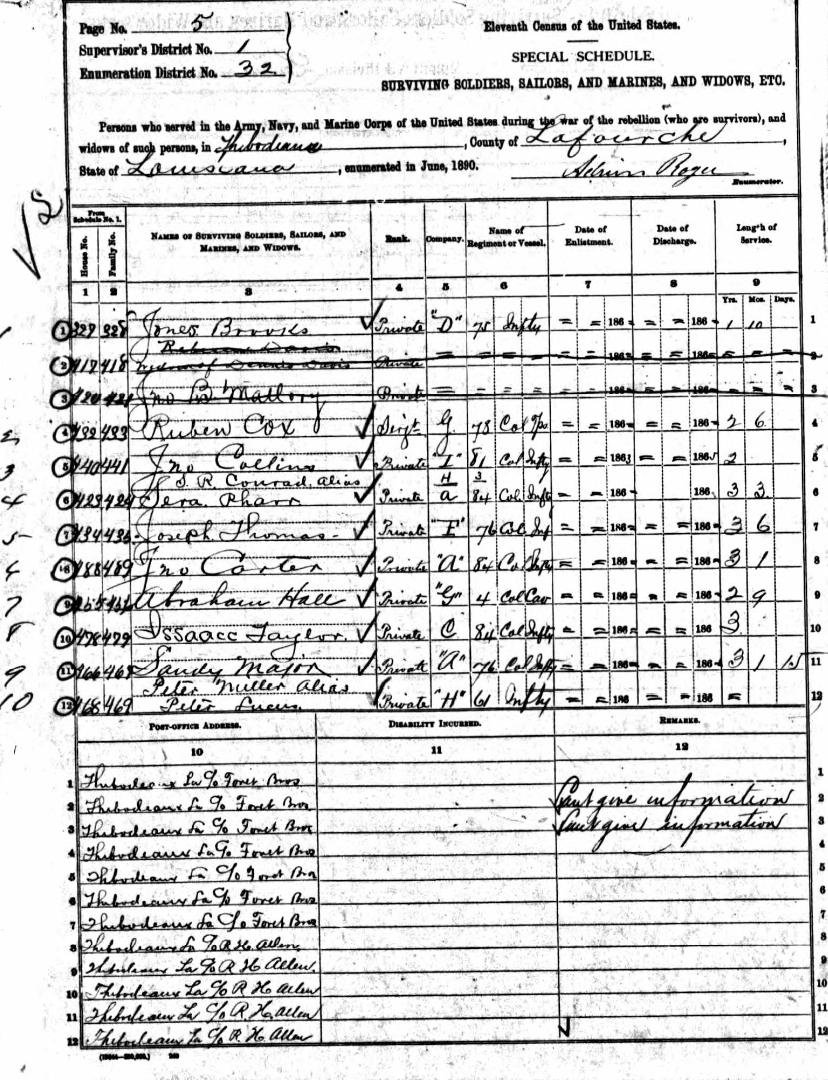 Page No. 5
Supervisor's District No. 1
Enumeration District No. 32
Eleventh Census of the United States.
SPECIAL SCHEDULE.
SURVIVING SOLDIERS, SAILORS, AND MARINES, AND WIDOWS, ETC.
Persons who served in the Army, Navy, and Marine Corps of the United States during the war of the rebellion (who are survivors), and
widows of such persons, in Thibodeaux, County of Lafourche,
State of Louisiana, enumerated in June, 1890.
Enumerator.
From Schedule No. 1.
House No. Family No. NAMES OF SURVIVING SOLDIERS, SAILORS, AND MARINES, AND WIDOWS. Rank. Company. Name of Regiment or Vessel. Date of Enlistment. Date of Discharge. Length of Service.
1 2 3 4 5 6 7 8 9
Yrs. Mos. Days.
1 Jones Brooks Private "D" 75 Infty = = 186 = = 186 1 10 1
2 417 418 widow of Dennis Davis Private = = 186 = = 186 = = = 2
3 Jno B Mallory Private = = = = 186 = = 186 = = = 3
4 432 433 Ruben Cox Sergt G. 78 Col = = 186 = = 186 2 6 4
5 440 441 Jno Collins Private "I" 81 Col Infty = = 1863 = = 1865 2 5
J. R. Conrad, alias H 3
6 423 424 Private a 84 Col Infty = = 186 186 3 3 6
7 434 435 Joseph Thomas Private "I" 76 Col Inf = = 186 = = 186 3 6 7
8 488 489 Jno Carter Private "A" 84 Col Infty = = 186 = = 186 3 1 8
9 Abraham Hall Private "G" 4 Col Cav = = 186 = = 186 2 9 9
10 478 479 Issaacc Taylor. Private C 84 Col Infty = = 186 = = 186 3 10
11 Sandy Major Private "A" 76 Col Infty = = 186 = = 186 3 1 15 11
Peter Miller Alias
12 468 469 Peter Private "H" 61 Infty = = 186 = = 186 = 12
POST-OFFICE ADDRESS. DISABILITY INCURRED. REMARKS.
10 11 12
1 Thibodeaux La c/o Foret Bros 1
2 Thibodeaux La c/o Foret Bros Can't give information 2
3 Thibodeaux La c/o Foret Bros Can't give information 3
4 Thibodeaux La c/o Foret Bros 4
5 Thibodeaux La c/o Foret Bros 5
6 Thibodeaux La c/o Foret Bros 6
7 Thibodeaux La c/o Foret Bros 7
8 Thibodeaux La c/o R. H. Allen, 8
9 Thibodeaux La c/o R H Allen. 9
10 Thibodeaux La c/o R. H. Allen 10
11 Thibodeaux La c/o R. H. Allen 11
12 Thibodeaux La c/o R H Allen 12